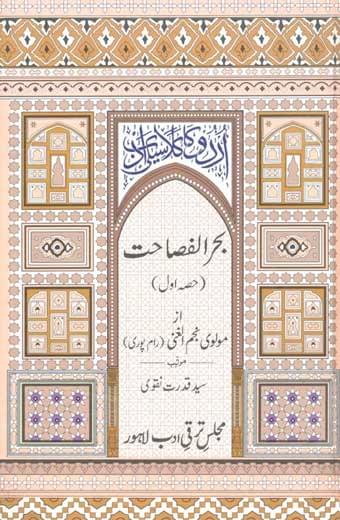 اردو کا کلاسیکی ادب
بحر الفصاحت
(حصہ اول)
از
مولوی نجم الغنی (رام پوری)
مرتب
سید قدرت نقوی
مجلس ترقی ادب لاہور